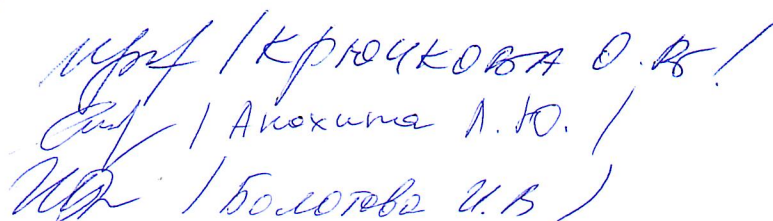 / Крючкова О.В /
/ Анохина Л.Ю. /
/ Болотова И.В /